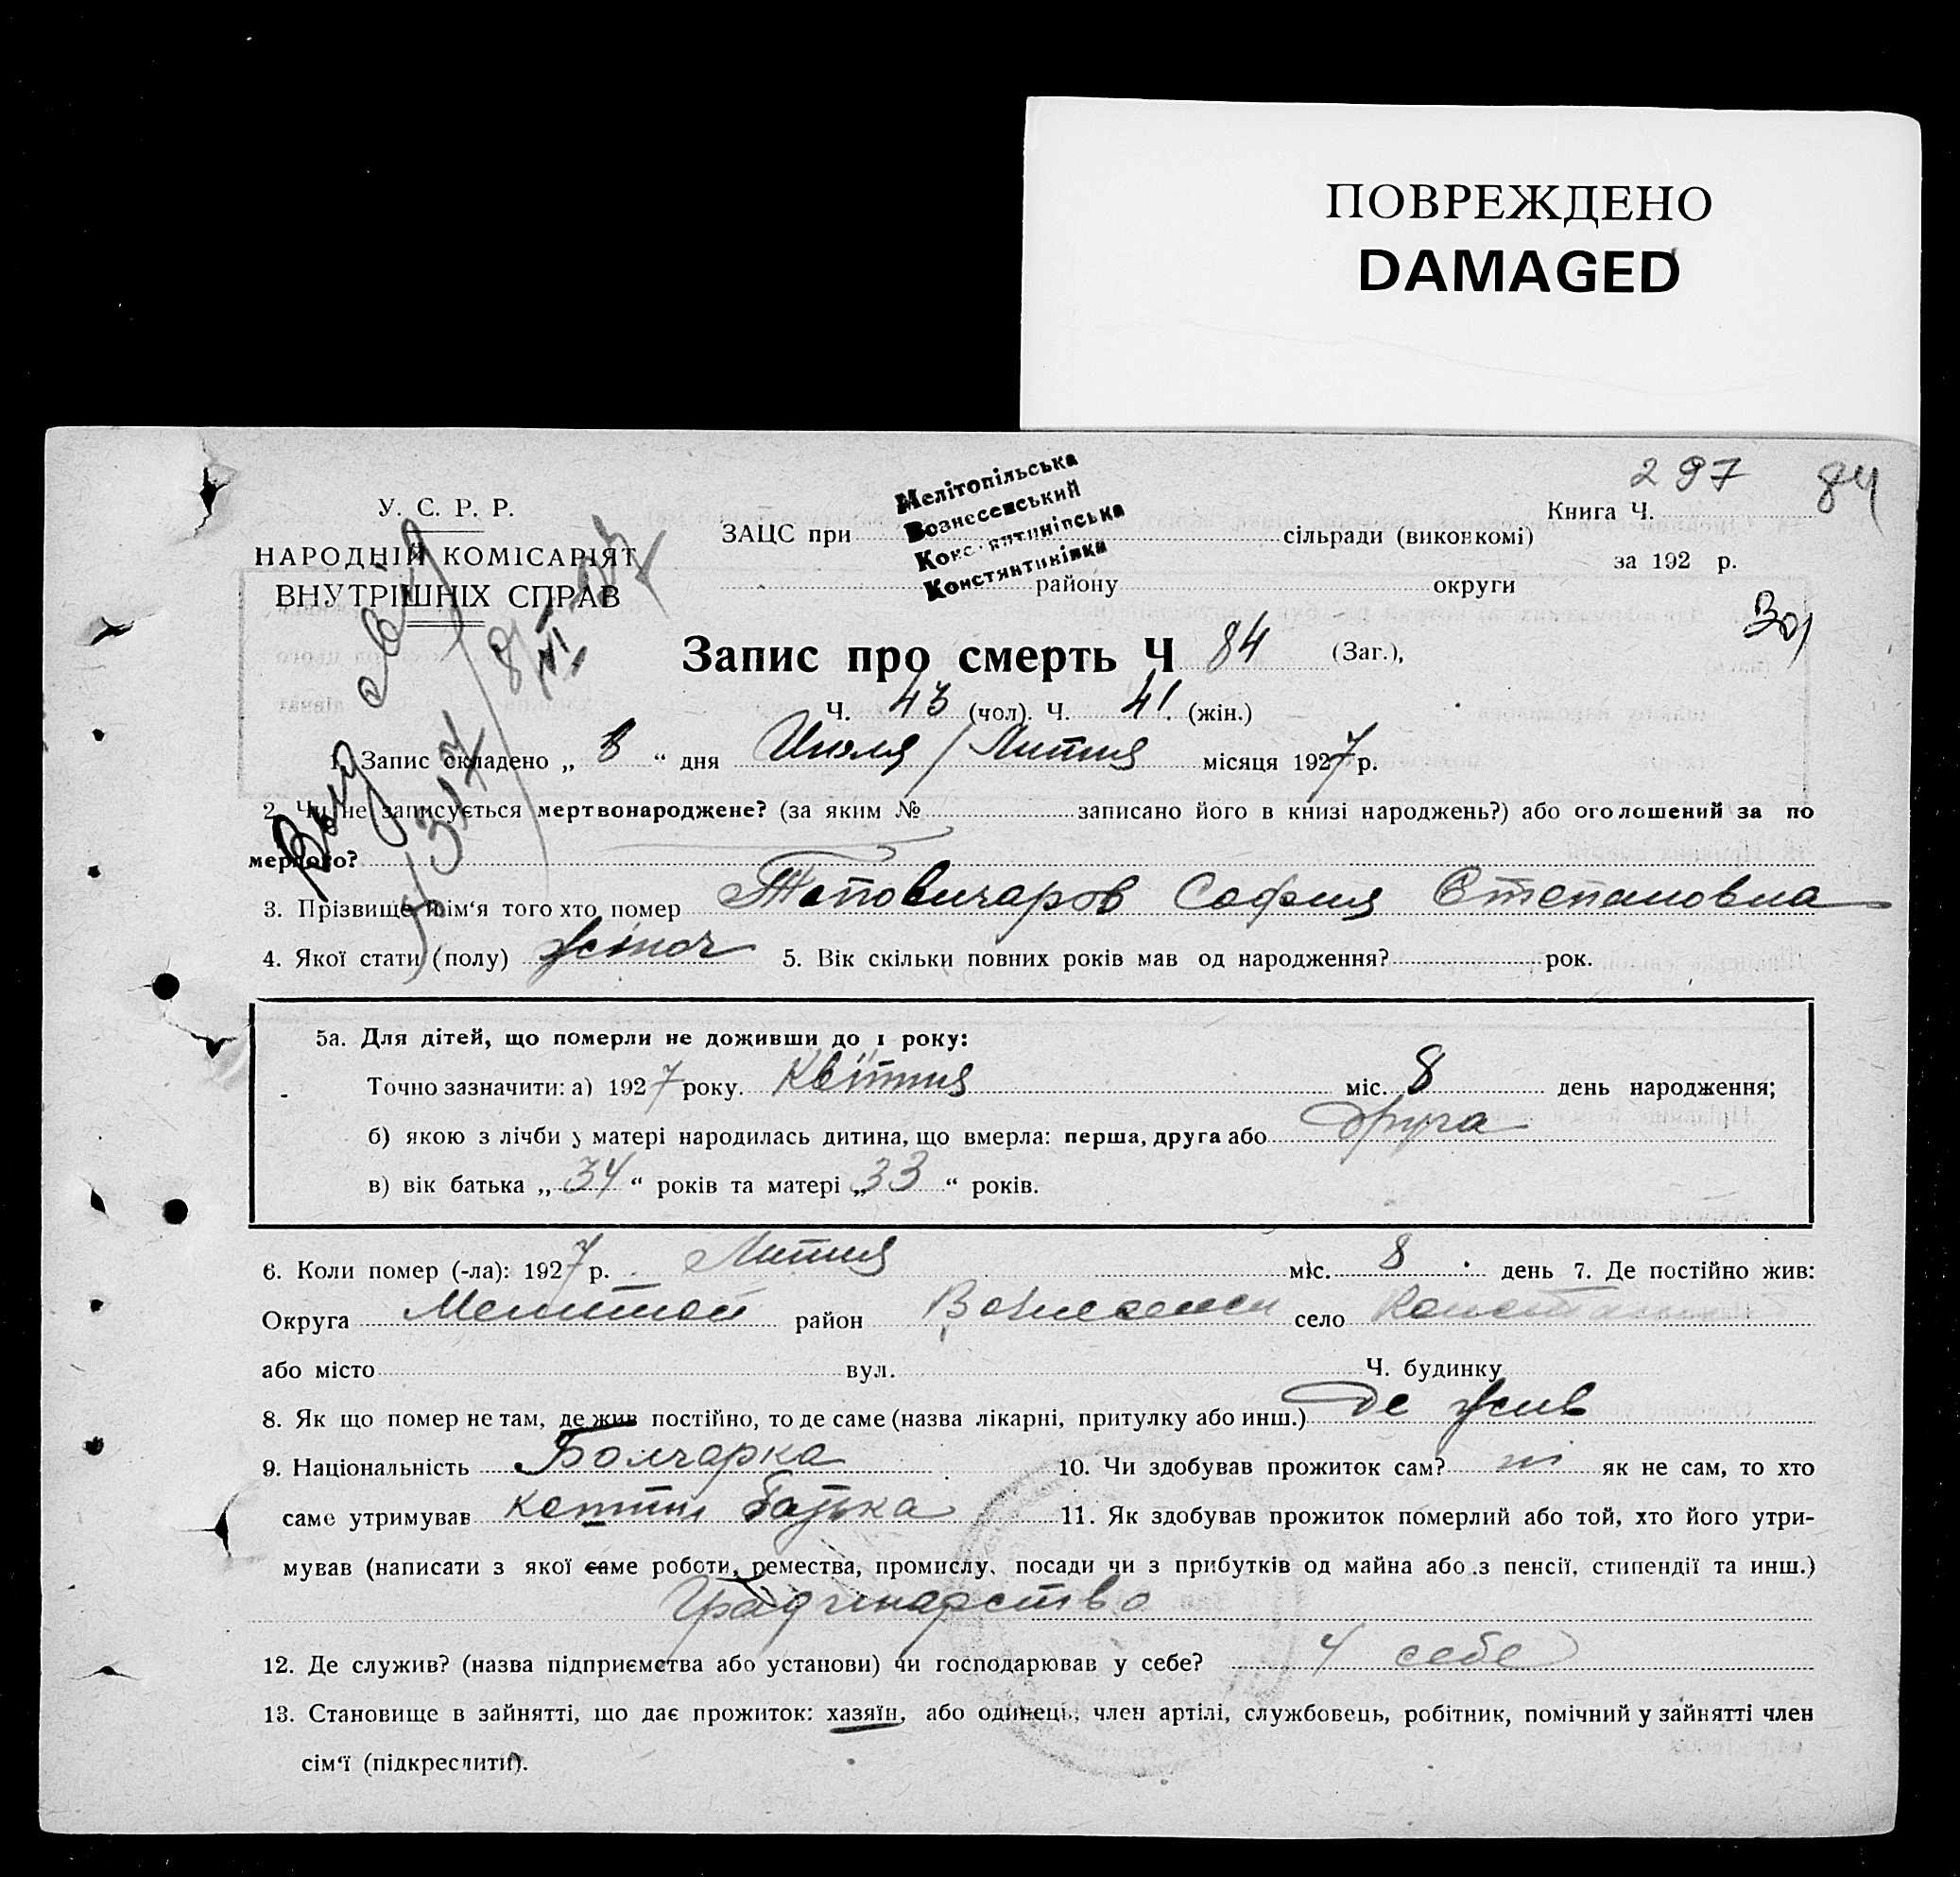 ПОВРЕЖДЕНО
DAMAGED
297 84
У. С. Р. Р.
НАРОДНІЙ КОМІСАРІЯТ
ВНУТРІШНІХ СПРАВ
Мелітопільська
Вознесенський
Констянтинівська
Констянтинівка
ЗАЦС при сільради (виконкомі)
району округи
Книга Ч.
за 192 р.
301
Запис про смерть Ч 84 (Заг.),
Ч. 43 (чол). Ч. 41. (жін.)
1. Запис складено „ 8 “ дня Июля / Липня місяця 1927 р.
2. Чи не записується мертвонароджене? (за яким № записано його в книзі народжень?) або оголошений за по
мерлого?
3. Прізвище й ім‘я того хто помер София Степановна
4. Якої стати (полу) жіноч 5. Вік скільки повних років мав од народження? рок.
5а. Для дітей, що померли не доживши до 1 року:
Точно зазначити: а) 1927 року. Квітня міс. 8 день народження;
б) якою з лічби у матері народилась дитина, що вмерла: перша, друга або друга
в) вік батька „ 34 “ років та матері „ 33 “ років.
6. Коли помер (-ла): 1927 р. Липня міс. 8 день 7. Де постійно жив:
Округа Мелітоп район Вознесенс село
або місто вул. Ч. будинку
8. Як що помер не там, де жив постійно, то де саме (назва лікарні, притулку або инш.) Де жив
9. Національність Болгарка 10. Чи здобував прожиток сам? ні як не сам, то хто
саме утримував батька 11. Як здобував прожиток померлий або той, хто його утри-
мував (написати з якої саме роботи, ремества, промислу, посади чи з прибутків од майна або з пенсії, стипендії та инш.)
12. Де служив? (назва підприємства або установи) чи господарював у себе? У себе
13. Становище в зайнятті, що дає прожиток: хазяїн, або одинець, член артілі, службовець, робітник, помічний у зайнятті член
сім‘ї (підкреслити).